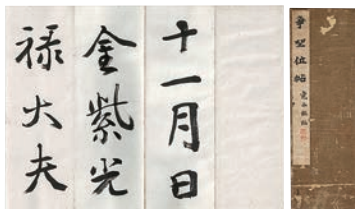 十一月日
金紫光
禄大夫
争坐位帖